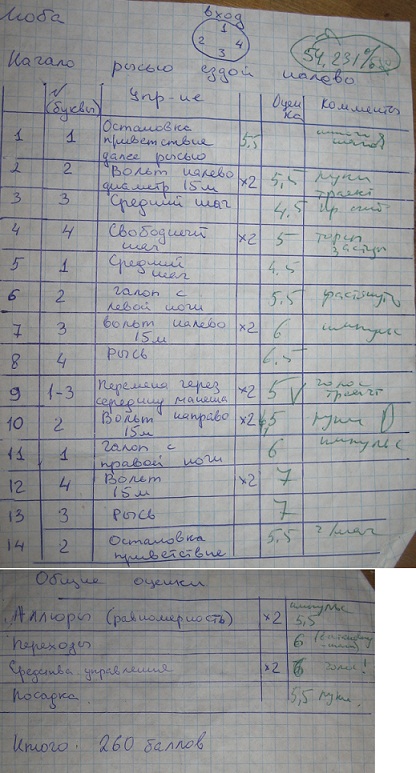 Люба
вход
1
2 4
3
54,231%
Начало рысью ездой налево
№ (буквы) Упр-ие Оценка Комменты
1 1 Остановка приветствие далее рысью 5,5
2 2 Вольт налево диаметр 15м ×2 5,5 руки
3 3 Средний шаг 4,5
4 4 Свободный шаг ×2 5
5 1 Средний шаг 4,5
6 2 галоп с левой ноги 5,5 растянут
7 3 вольт налево 15м ×2 6 импульс
8 4 Рысь 6,5
9 1-3 Перемена через середину манежа ×2 5 голос
10 2 Вольт направо 15м ×2 руки
11 1 галоп с правой ноги 6 импульс
12 4 Вольт 15м ×2 7
13 3 Рысь 7
14 2 Остановка приветствие 5,5 ч/шаг
Общие оценки
Аллюры (равномерность) ×2 импульс 5,5
Переходы 6
Средства управления ×2 6 голос!
Посадка 5,5 руки
Итого. 260 баллов